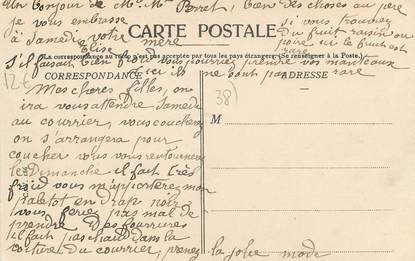 un bonjour de Mr Mme Perret, bien des choses au père
je vous embrasse
à Samedi, votre mère
Elise
si vous trouvez
du fruit raisin ou
poire ici le fruit est
CARTE POSTALE
(La correspondance au recto n'est pas acceptée par tous les pays étrangers. (Se renseigner à la Poste.)
S'il faisait vous pourriez prendre vos manteaux
ici ils ne sont pas rare
CORRESPONDANCE
ADRESSE
12 €
38
M
Mes chères filles, on
ira vous attendre Samedi
au courrier, vous coucherez
on s'arrangera pour
coucher vous vous retournerez
le Dimanche il fait très
froid vous m'apporterez mon
paletot en drap noir
vous feriez pas mal de
prendre des fourrures
il fait pas chaud dans la
voiture du courrier, prenez
la jolie mode